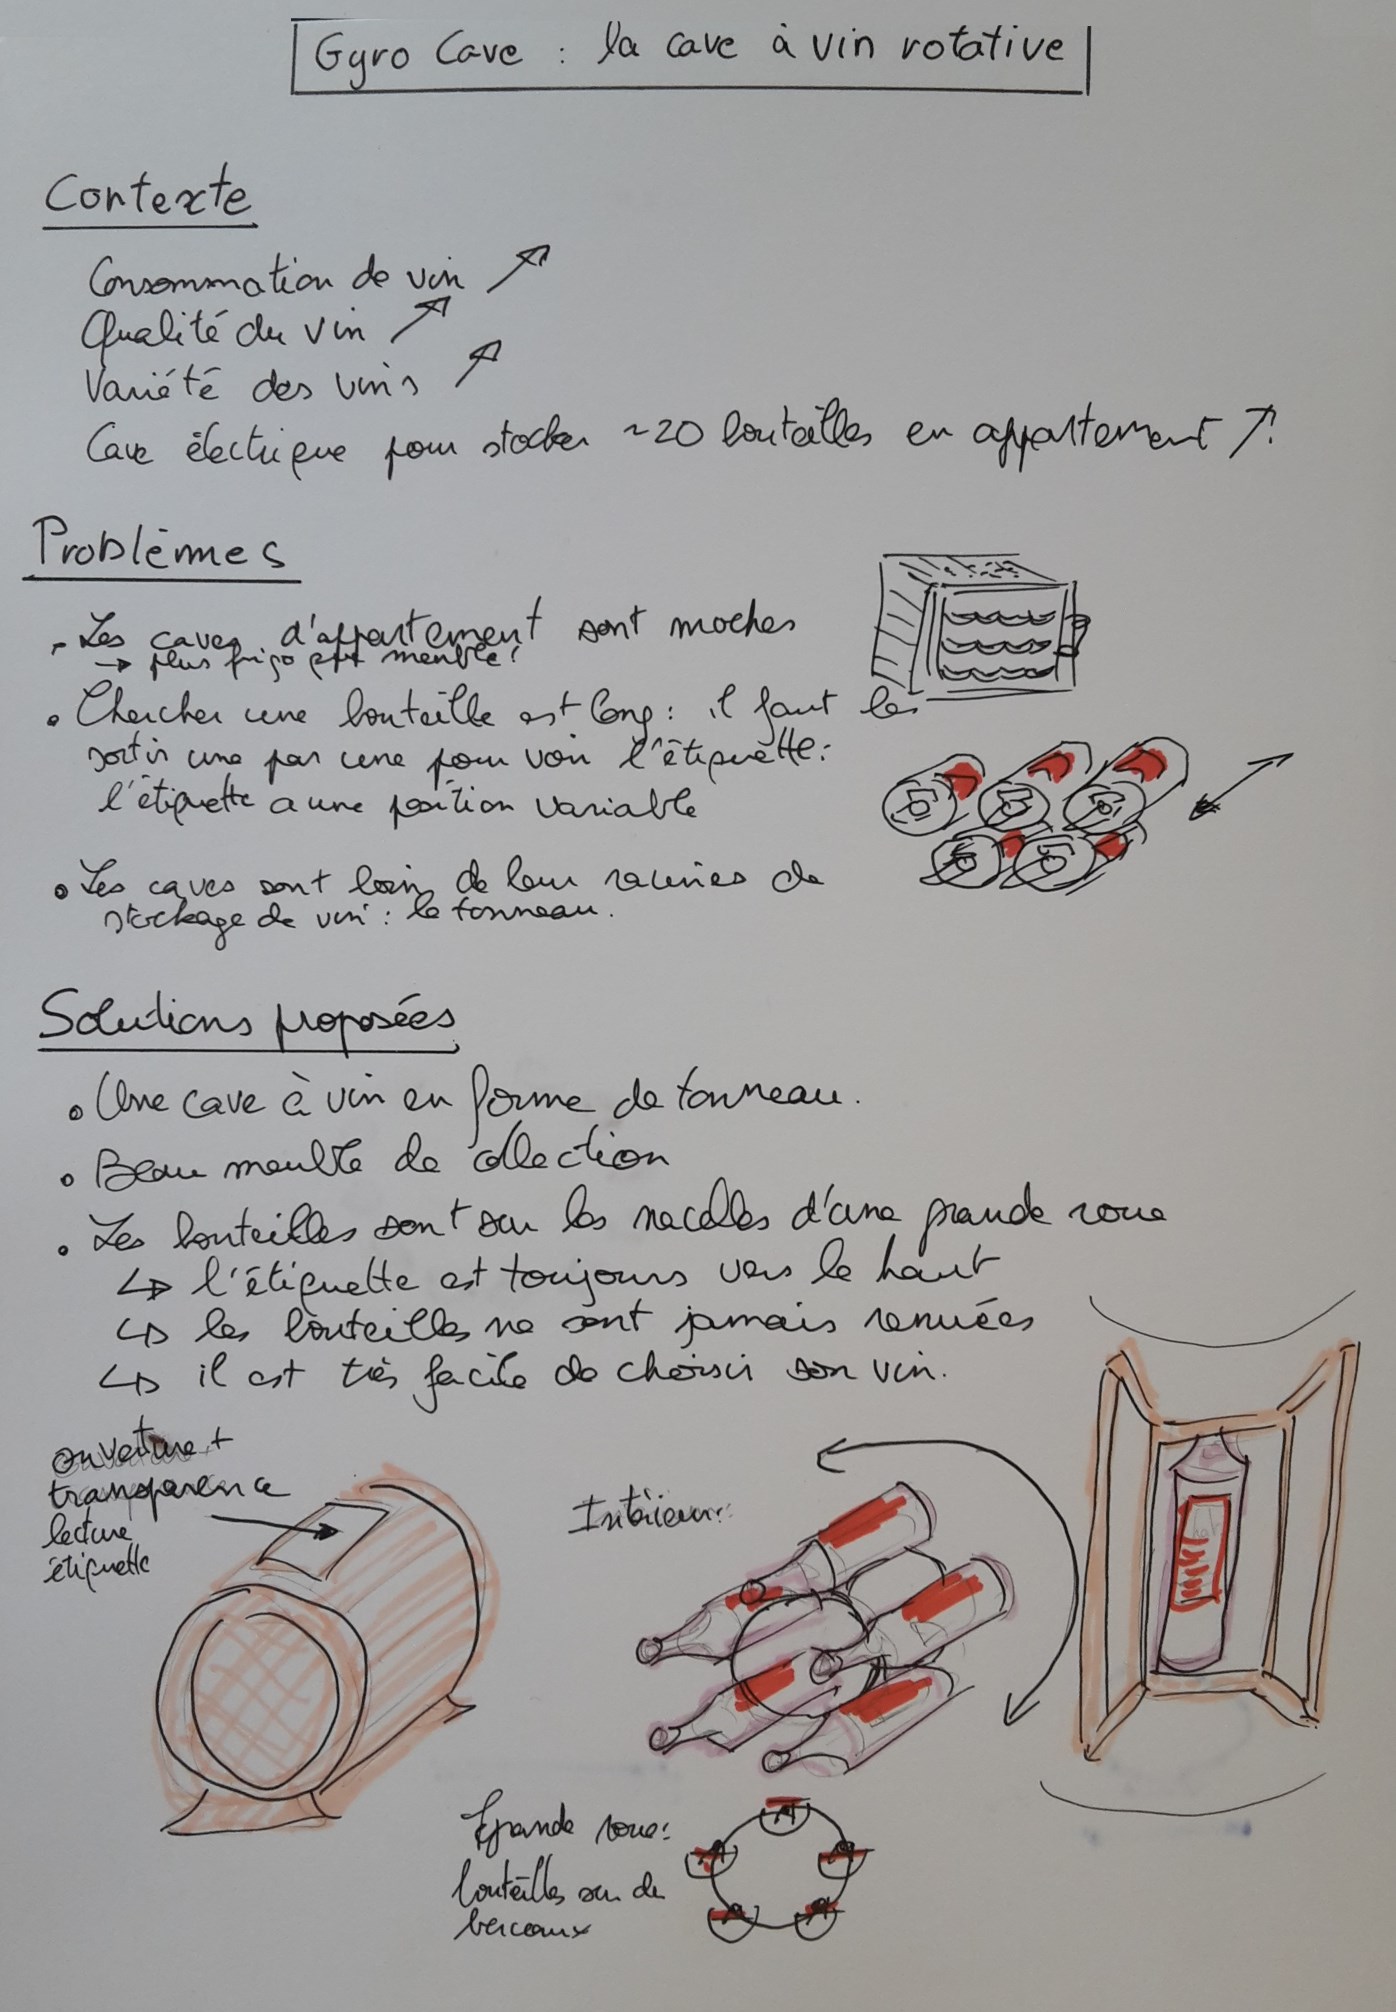 Gyro Cave : la cave à vin rotative
Contexte
Consommation de vin ↗
Qualité du vin ↗
Variété des vins ↗
Cave électrique pour stocker ~20 bouteilles en appartement ↗
Problèmes
- Les caves d'appartement sont moches
→ plus frigo que meuble!
• Chercher une bouteille est long : il faut les
sortir une par une pour voir l'étiquette :
l'étiquette a une position variable
• Les caves sont loin de leur racines de
stockage de vin : le tonneau.
Solutions proposées
• Une cave à vin en forme de tonneau.
• Beau meuble de collection
• Les bouteilles sont sur les nacelles d'une grande roue
↳ l'étiquette est toujours vers le haut
↳ les bouteilles ne sont jamais remuées
↳ il est très facile de choisir son vin.
ouverture +
transparence
lecture
étiquette
Intérieur :
grande roue :
bouteilles sur de
berceaux